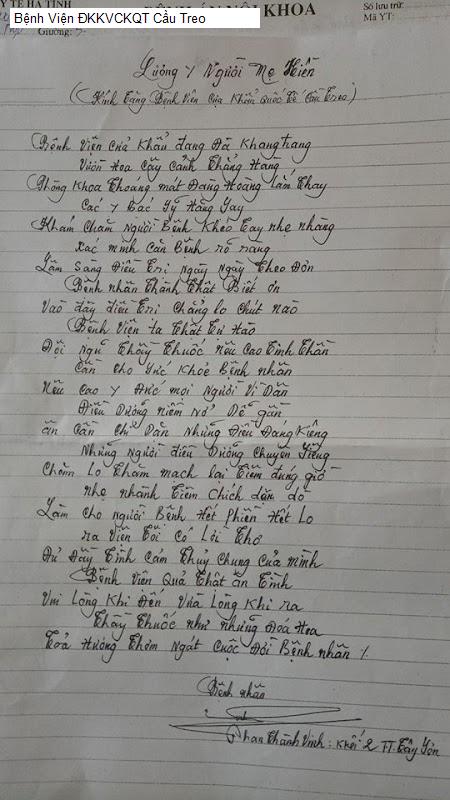 Bệnh Viện ĐKKVCKQT Cầu Treo
Y TẾ HÀ TĨNH
BỆNH ÁN NỘI KHOA
Số lưu trữ:
Mã YT:
Giường:
Lương Y Người Mẹ Hiền
(Kính Tặng Bệnh Viện Cửa Khẩu Quốc Tế Cầu Treo)
Bệnh Viện Cửa Khẩu đang Đà Khang trang
Vườn Hoa Cây Cảnh Thẳng Hàng
Phòng Khoa Thoáng mát Đàng Hoàng Lắm Thay
Các Y Bác Sỹ Hăng Say
Khám Chăm Người Bệnh Khéo Tay nhẹ nhàng
Xác minh Căn Bệnh rõ ràng
Lâm Sàng Điều Trị ngày ngày Theo Đơn
Bệnh nhân Thành Thật Biết ơn
Vào đây điều Trị Chẳng lo Chút nào
Bệnh Viện ta Thật Tự Hào
Đội ngũ Thầy Thuốc nêu Cao Tinh Thần
Cần Cho Sức Khoẻ Bệnh nhân
Nêu Cao Y Đức mọi Người Vì Dân
Điều Dưỡng niềm nở Dễ gần
ăn Cần Chỉ Dẫn Những Điều Đáng Kiêng
Những Người điều Dưỡng Chuyên
Chăm Lo Thăm mạch lại Tiêm đúng giờ
nhẹ nhành Tiêm Chích dặn dò
Làm Cho người Bệnh Hết Phiền Hết Lo
ra Viện Tôi Có Lời Thơ
Đủ Đầy Tình Cảm Thuỷ Chung Của mình
Bệnh Viện Quả Thật ân Tình
Vui Lòng Khi Đến Vừa Lòng Khi ra
Thầy Thuốc như những Đoá Hoa
Toả Hương Thơm Ngát Cuộc Đời Bệnh nhân /.
Bệnh nhân
Phan Thành Vinh: Khối 2 TT. Tây Sơn